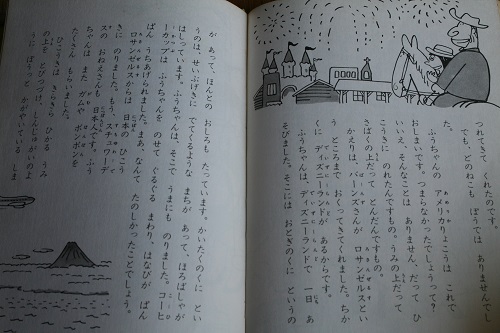 つれてきて くれたのです。
でも、どのねこも ぼうでは ありませんでし
た。
ふうちゃんの アメリカりょこうは これで
おしまいです。つまらなかったでしょうって?
いいえ、そんなことは ありません。だって ひ
こうきに のれたんですもの。うみの上だって
さばくの上だって とんだんですもの。
かえりは、バーンズさんが ロサンゼルスとい
う ところまで おくってきてくれました。ちか
くに ディズニーランドが あるからです。
ふうちゃんは、ディズニーランドで 一日、あ
そびました。そこには おとぎのくに というの
が あって、ほんとの おしろも たっています。かいたくのくに とい
うのは、せいぶげきに でてくるような まちが あって、ほろばしゃが
はしっています。ふうちゃんは、そこで うまにも のりました。コーヒ
ーカップは ふうちゃんを のせて ぐるぐる まわり、はなびが ぱん
ぱん うちあげられました。まあ、なんて たのしかったことでしょう。
ロサンゼルスからは 日本の ひこう
きに のりました。もう、スチュワーデ
スの おねえさんも 日本人です。ふう
ちゃんは また ガムや ボンボンを
たくさん もらいました。
ひこうきは きらきら ひかる うみ
の上を とびつづけ、しんじゅがいのよ
うに ぼうっと かがやいている しま